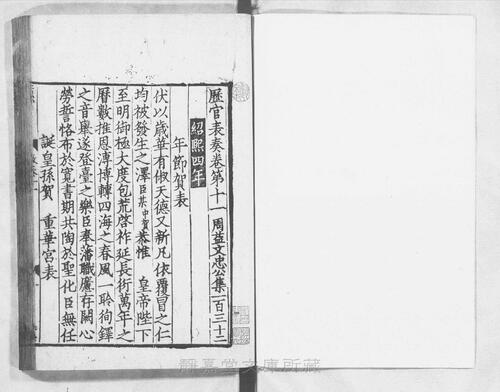 歷官表奏卷第十一 周益文忠公集一百三十二
紹熙四年
年節賀表
伏以歲華有俶天德又新凡依覆冒之仁
均被發生之澤臣某中賀恭惟 皇帝陛下
至明御極大度包荒啓祚延長術萬年之
曆數推恩溥博轉四海之春風一聆徇鐸
之音樂遂登臺之樂臣奉藩職廑存闕心
勞誓恪布於寬書期共陶於聖化臣無任
誕皇孫賀 重華宮表
靜嘉堂文庫所藏